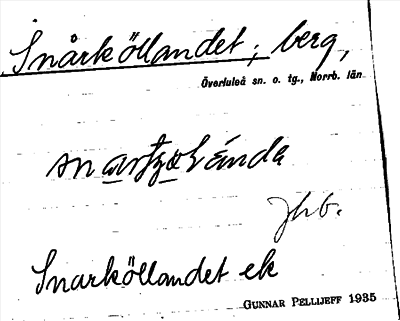 Snårköllandet, berg,
Överluleå sn. o. tg., Norrb. län
Jhb.
Snarköllandet ek
GUNNAR PELLIJEFF 1935